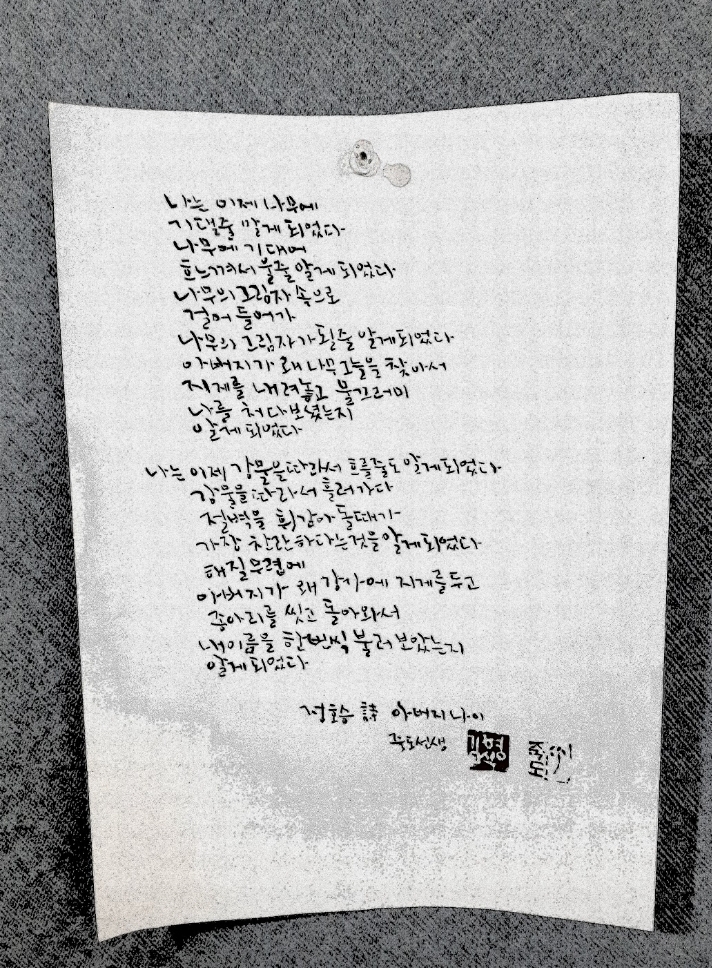 나는 이제 나무에
기댈줄 알게 되었다
나무에 기대어
흐느껴서 울줄 알게 되었다
나무의 그림자 속으로
걸어 들어가
나무의 그림자가 될줄 알게 되었다
아버지가 왜 나무그늘을 찾아서
지게를 내려놓고 물끄러미
나를 쳐다보셨는지
알게 되었다
나는 이제 강물을 따라서 흐를줄도 알게 되었다
강물을 따라서 흘러가다
절벽을 휘감아 돌때가
가장 찬란하다는것을 알게 되었다
해질무렵에
아버지가 왜 강가에 지게를 두고
종아리를 씻고 돌아와서
내이름을 한번씩 불러 보았는지
알게 되었다
정호승 詩 아버지나이